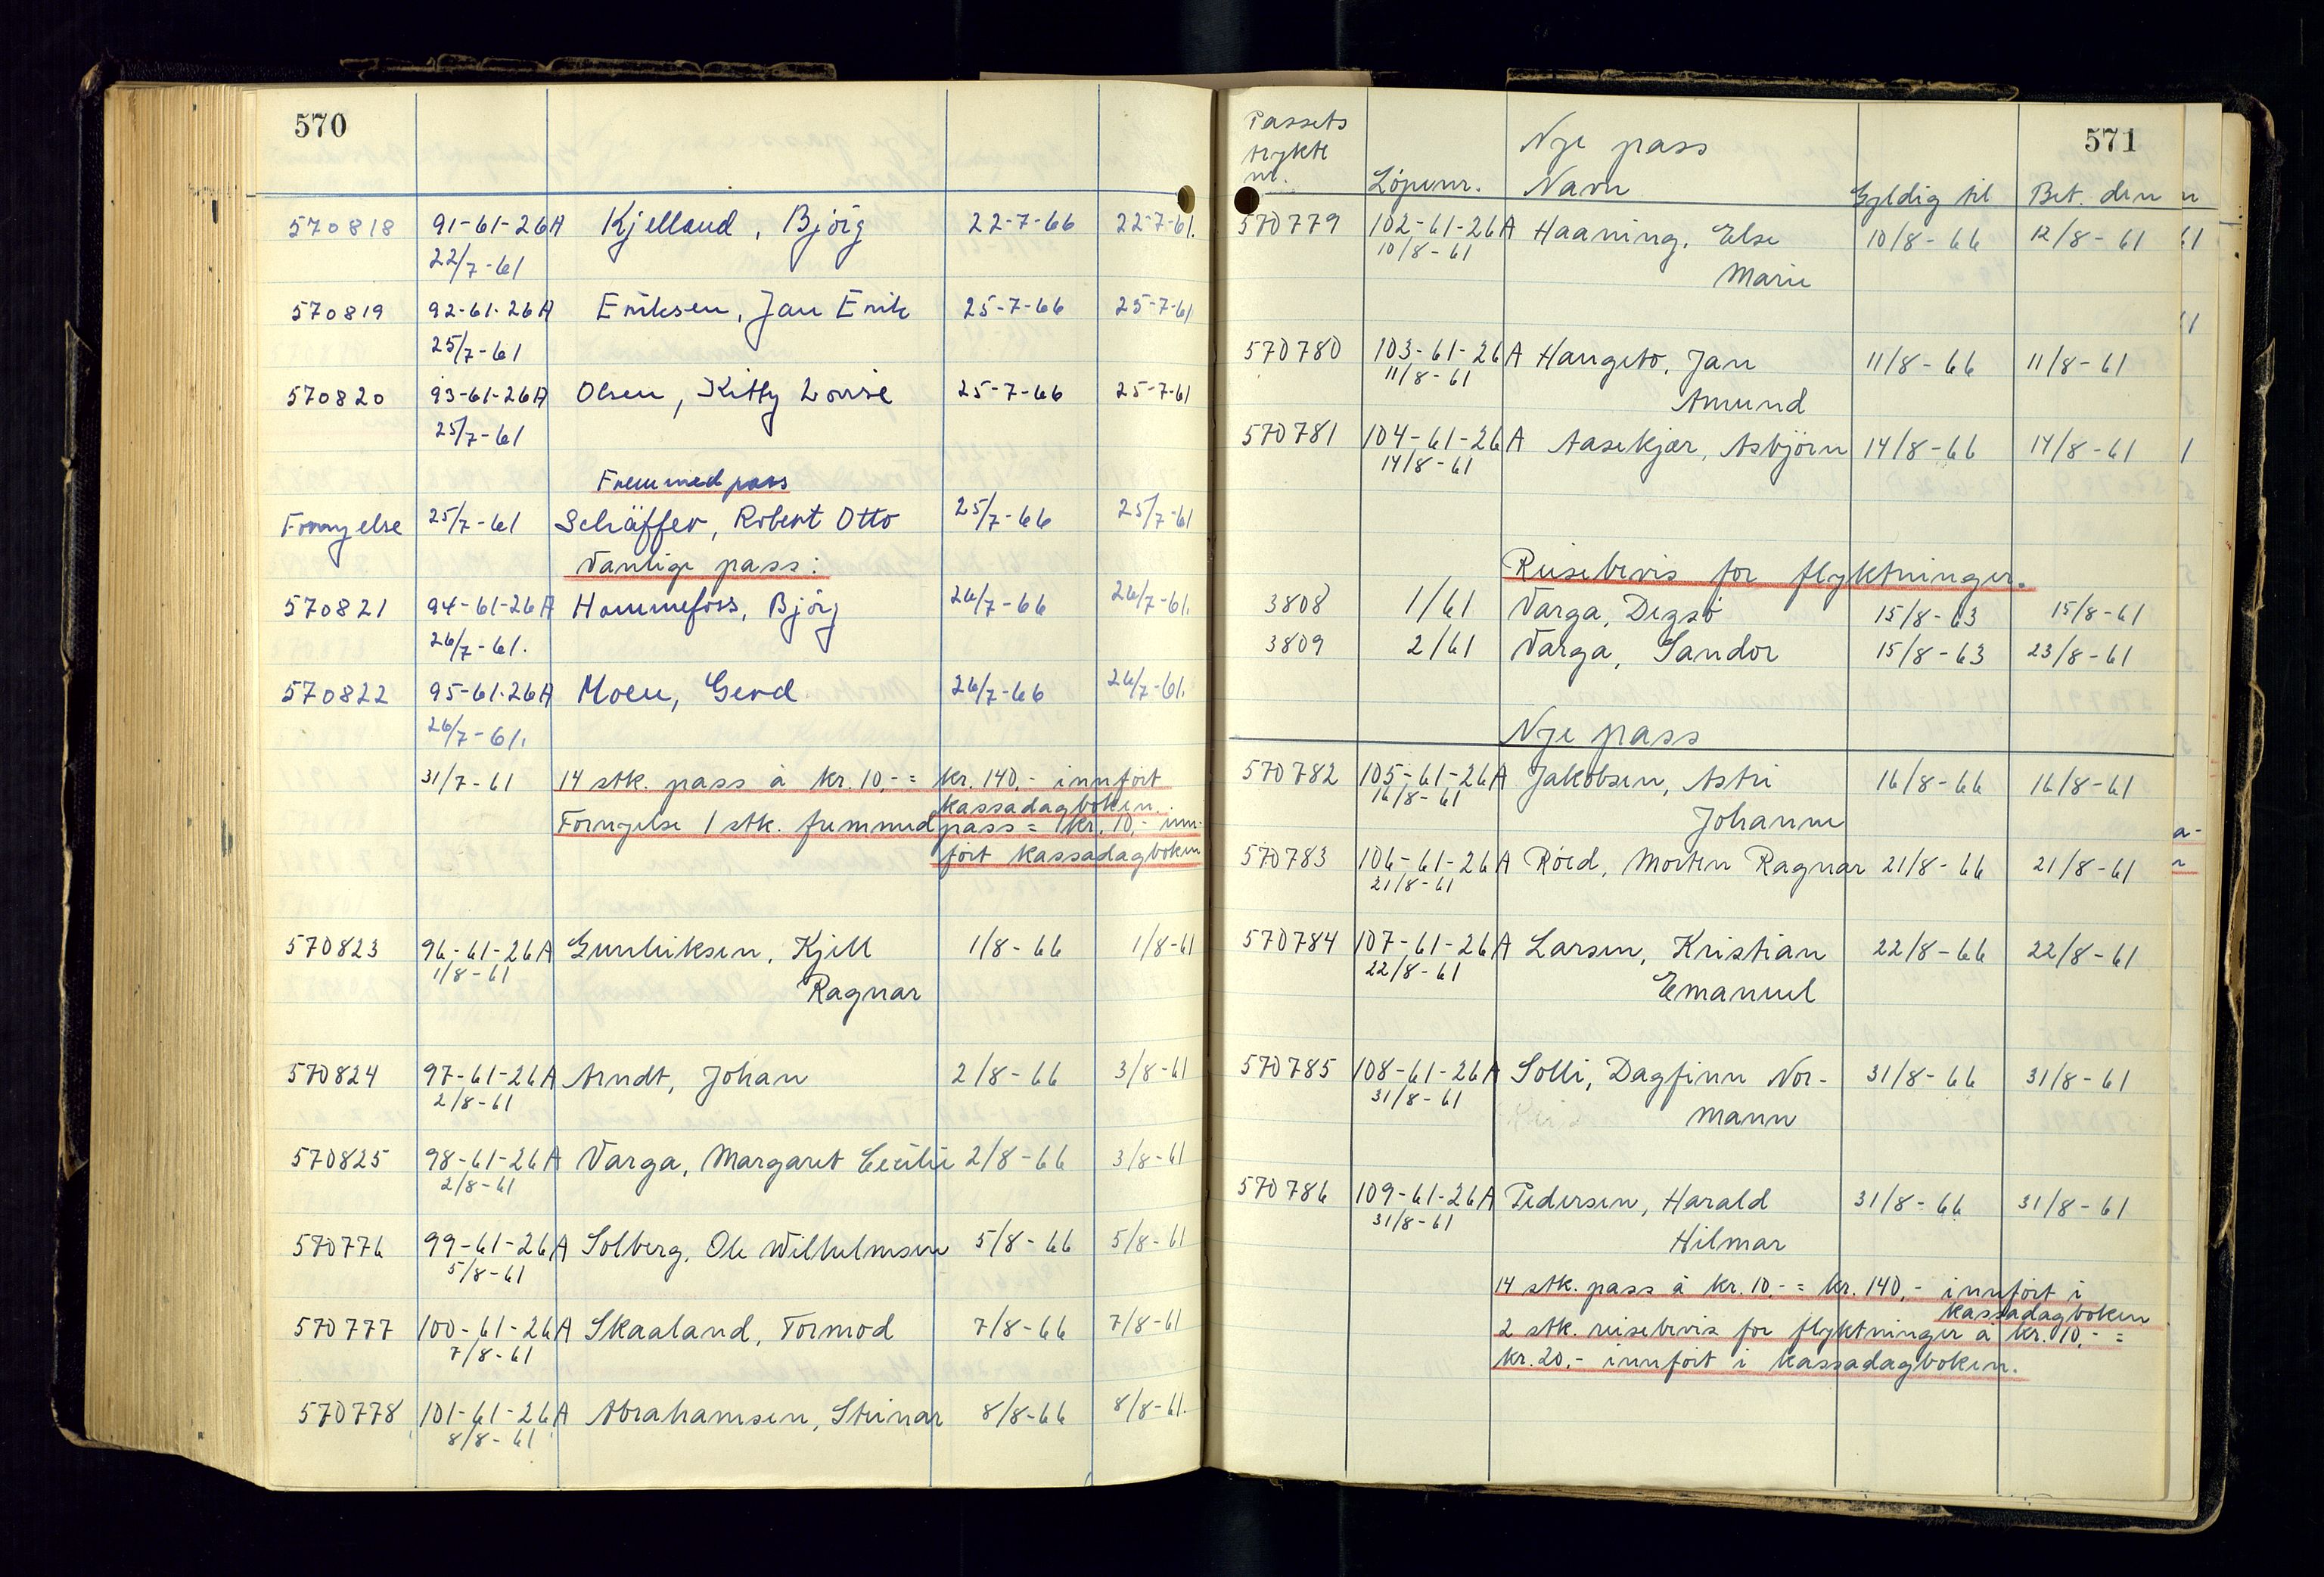 570
570818 91-61-26A Kjelland, Bjørg 22-7-66 22-7-61.
22/7-61
570819 92-61-26A Eriksen, Jan Erik 25-7-66 25-7-61
25/7-61
570820 93-61-26A Olsen, Kitty Louise 25-7-66 25-7-61
25/7-61
Fremmedpass
Fornyelse 25/7-61 Schäffer, Robert Otto 25/7-66 25/7-61
Vanlige pass:
570821 94-61-26A Hommefoss, Bjørg 26/7-66 26/7-61.
26/7-61.
570822 95-61-26A Moen, Gerd 26/7-66 26/7-61.
26/7-61.
31/7-61 14 stk. pass à kr. 10,- = kr. 140,- innført
kassadagboken.
Fornyelse 1 stk. fremmedpass = kr. 10,- inn-
ført kassadagboken
570823 96-61-26A Gunleiksen, Kjell 1/8-66 1/8-61
1/8-61
Ragnar
570824 97-61-26A Arndt, Johan 2/8-66 3/8-61
2/8-61
570825 98-61-26A Varga, Margaret Cecilie 2/8-66 3/8-61
2/8-61
570776 99-61-26A Solberg, Ole Wilhelmsen 5/8-66 5/8-61
5/8-61
570777 100-61-26A Skaaland, Tormod 7/8-66 7/8-61
7/8-61
570778 101-61-26A Abrahamsen, Steinar 8/8-66 8/8-61.
8/8-61
571
Passets
trykte Nye pass
nr. Löpenr. Navn Gyldig til Bet. den
570779 102-61-26A Haaning, Else 10/8-66 12/8-61
10/8-61
Marie
570780 103-61-26A Haugeto, Jan 11/8-66 11/8-61
11/8-61
Amund
570781 104-61-26A Aasekjær, Asbjörn 14/8-66 14/8-61
14/8-61
Reisebevis for flyktninger.
3808 1/61 Varga, Dezsö 15/8-63 15/8-61
3809 2/61 Varga, Sandor 15/8-63 23/8-61
Nye pass
570782 105-61-26A Jakobsen, Astri 16/8-66 16/8-61
16/8-61
Johanne
570783 106-61-26A Röed, Morten Ragnar 21/8-66 21/8-61
21/8-61
570784 107-61-26A Larsen, Kristian 22/8-66 22/8-61
22/8-61
Emanuel
570785 108-61-26A Solli, Dagfinn Nor- 31/8-66 31/8-61
31/8-61
mann
570786 109-61-26A Pedersen, Harald 31/8-66 31/8-61
31/8-61
Hilmar
14 stk. pass à kr. 10.- = kr. 140,- innfört i
kassadagboken
2 stk. reisebevis for flyktninger à kr. 10,- =
kr. 20,- innfört i kassadagboken.